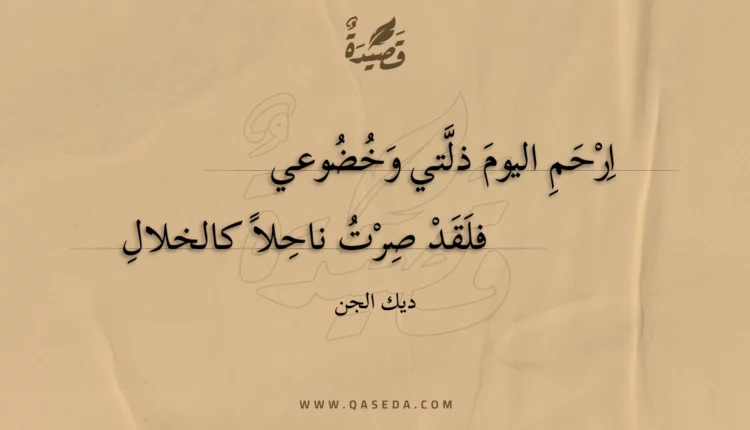 قَصِيدَةٌ
اِرْحَمِ اليومَ ذلَّتي وَخُضُوعي
فلَقَدْ صِرْتُ ناحِلاً كالخلالِ
ديك الجن
WWW.QASEDA.COM